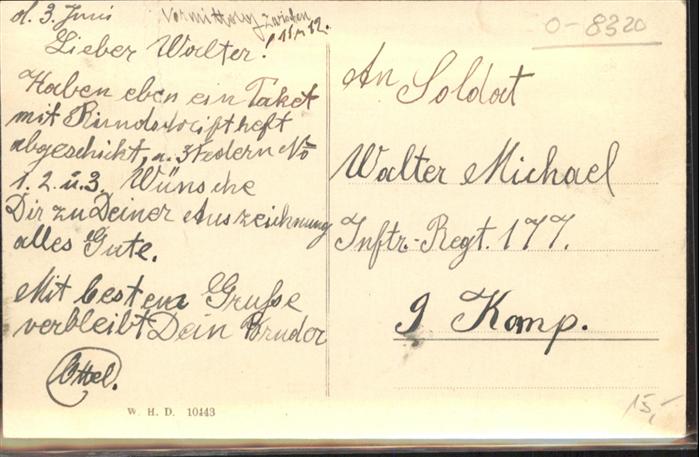 d. 3. Juni
Vormittag zwischen
11 u 12.
Lieber Walter!
Haben eben ein Paket
mit Rundschriftheft
abgeschickt, u. 3 Federn No
1. 2. u. 3. Wünsche
Dir zu Deiner Auszeichnung
alles Gute.
Mit besten Gruße
verbleibt Dein Bruder
Ottel.
W. H. D. 10443
0-8320
An Soldat
Walter Michael
Inftr.-Regt. 177.
9 Komp.
15,-